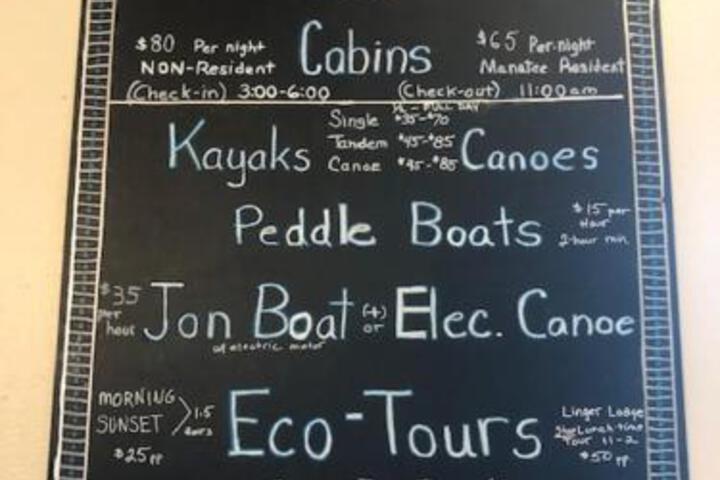 $80 Per night Cabins $65 Per night
NON-Resident Manatee Resident
(Check-in) 3:00-6:00 (Check-out) 11:00am
½ - FULL DAY
Single $35-$70
Kayaks Tandem $45-$85 Canoes
Canoe $45-$85
Peddle Boats $15 per
Hour
2-hour min.
$35 per hour Jon Boat (+) or Elec. Canoe
w/ electric motor
MORNING
SUNSET 1.5
$25 pp
Eco-Tours
Linger Lodge
Lunch-time
Tour 11-2
$50 pp.